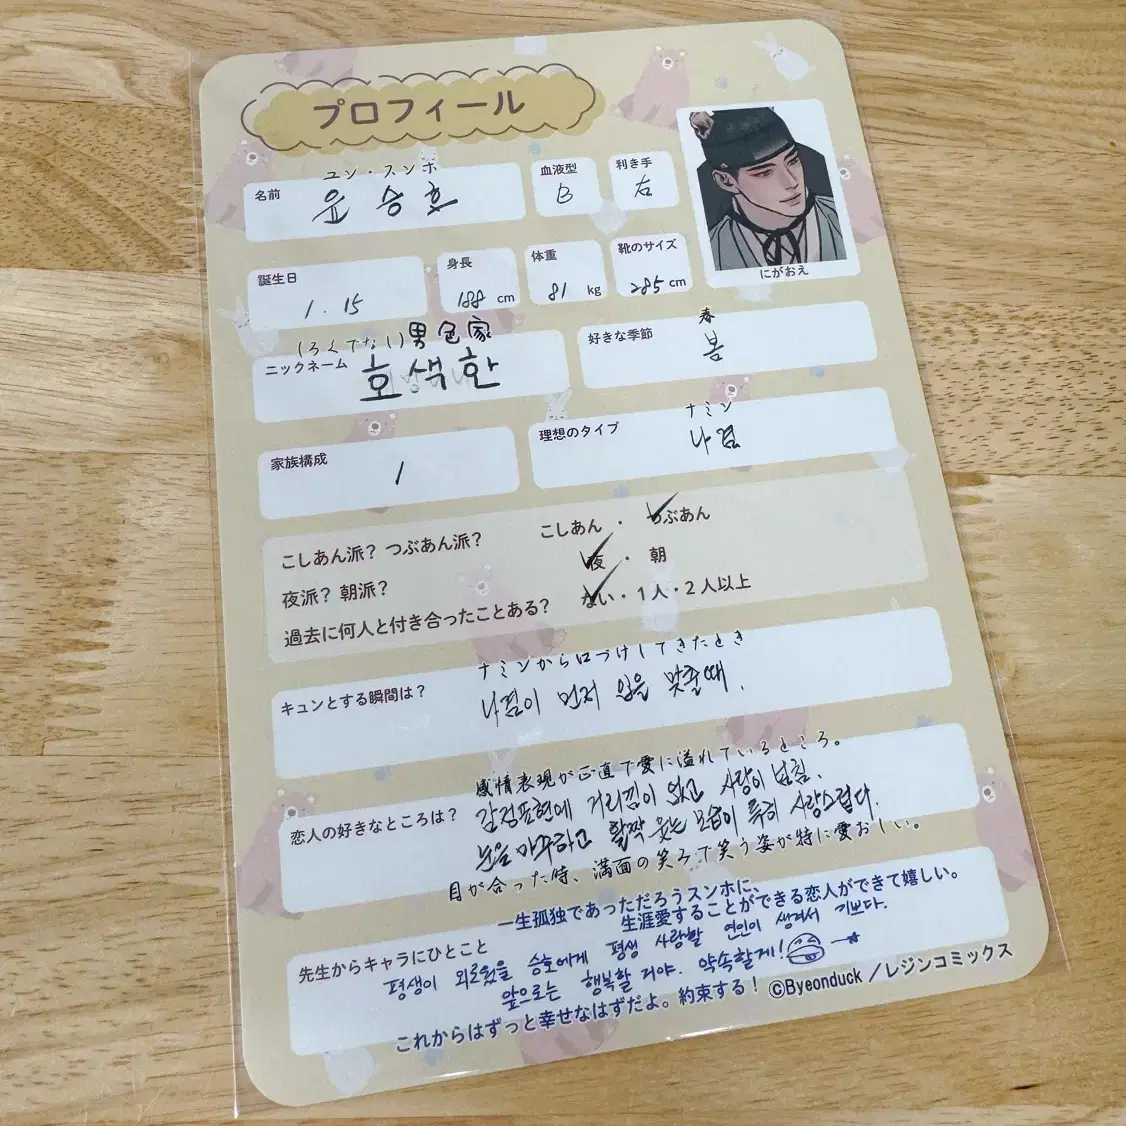 プロフィール
ユン・スンホ
名前 윤승호
血液型 B
利き手 右
にがおえ
誕生日 1.15
身長 188 cm
体重 81 kg
靴のサイズ 285 cm
(ろくでない)男色家
ニックネーム 호색한
春
好きな季節 봄
家族構成 1
ナミン
理想のタイプ 나겸
こしあん派？つぶあん派？ こしあん・つぶあん
夜派？朝派？ 夜・朝
過去に何人と付き合ったことある？ ない・1人・2人以上
ナミンから口づけしてきたとき
キュンとする瞬間は？ 나겸이 먼저 입을 맞출때.
感情表現が正直で愛に溢れているところ。
恋人の好きなところは？ 감정표현에 거리낌이 없고 사랑이 넘침.
눈을 마주하고 활짝 웃는 모습이 특히 사랑스럽다.
目が合った時、満面の笑みで笑う姿が特に愛おしい。
一生孤独であっただろうスンホに、
生涯愛することができる恋人ができて嬉しい。
先生からキャラにひとこと
평생이 외로웠을 승호에게 평생 사랑할 연인이 생겨서 기쁘다.
앞으로는 행복할 거야. 약속할게!
これからはずっと幸せなはずだよ。約束する！
©Byeonduck／レジンコミックス